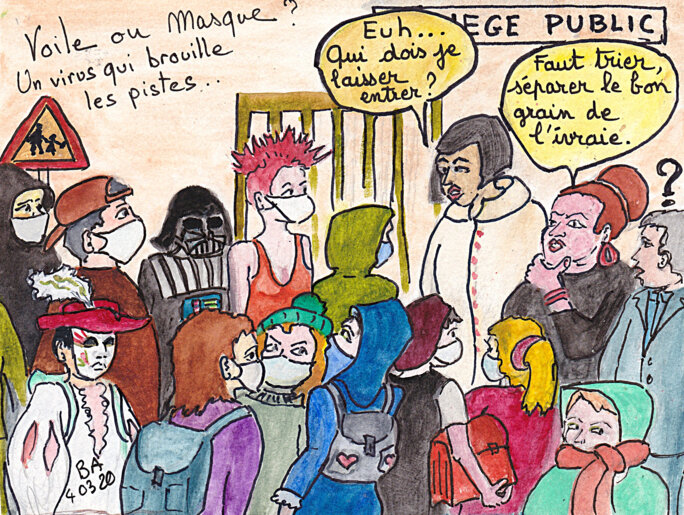 Voile ou Masque ?
Un virus qui brouille
les pistes...
EGE PUBLIC
Euh...
Qui dois je
laisser
entrer ?
Faut trier,
séparer le bon
grain de
l'ivraie.
?
BA
4 03 20